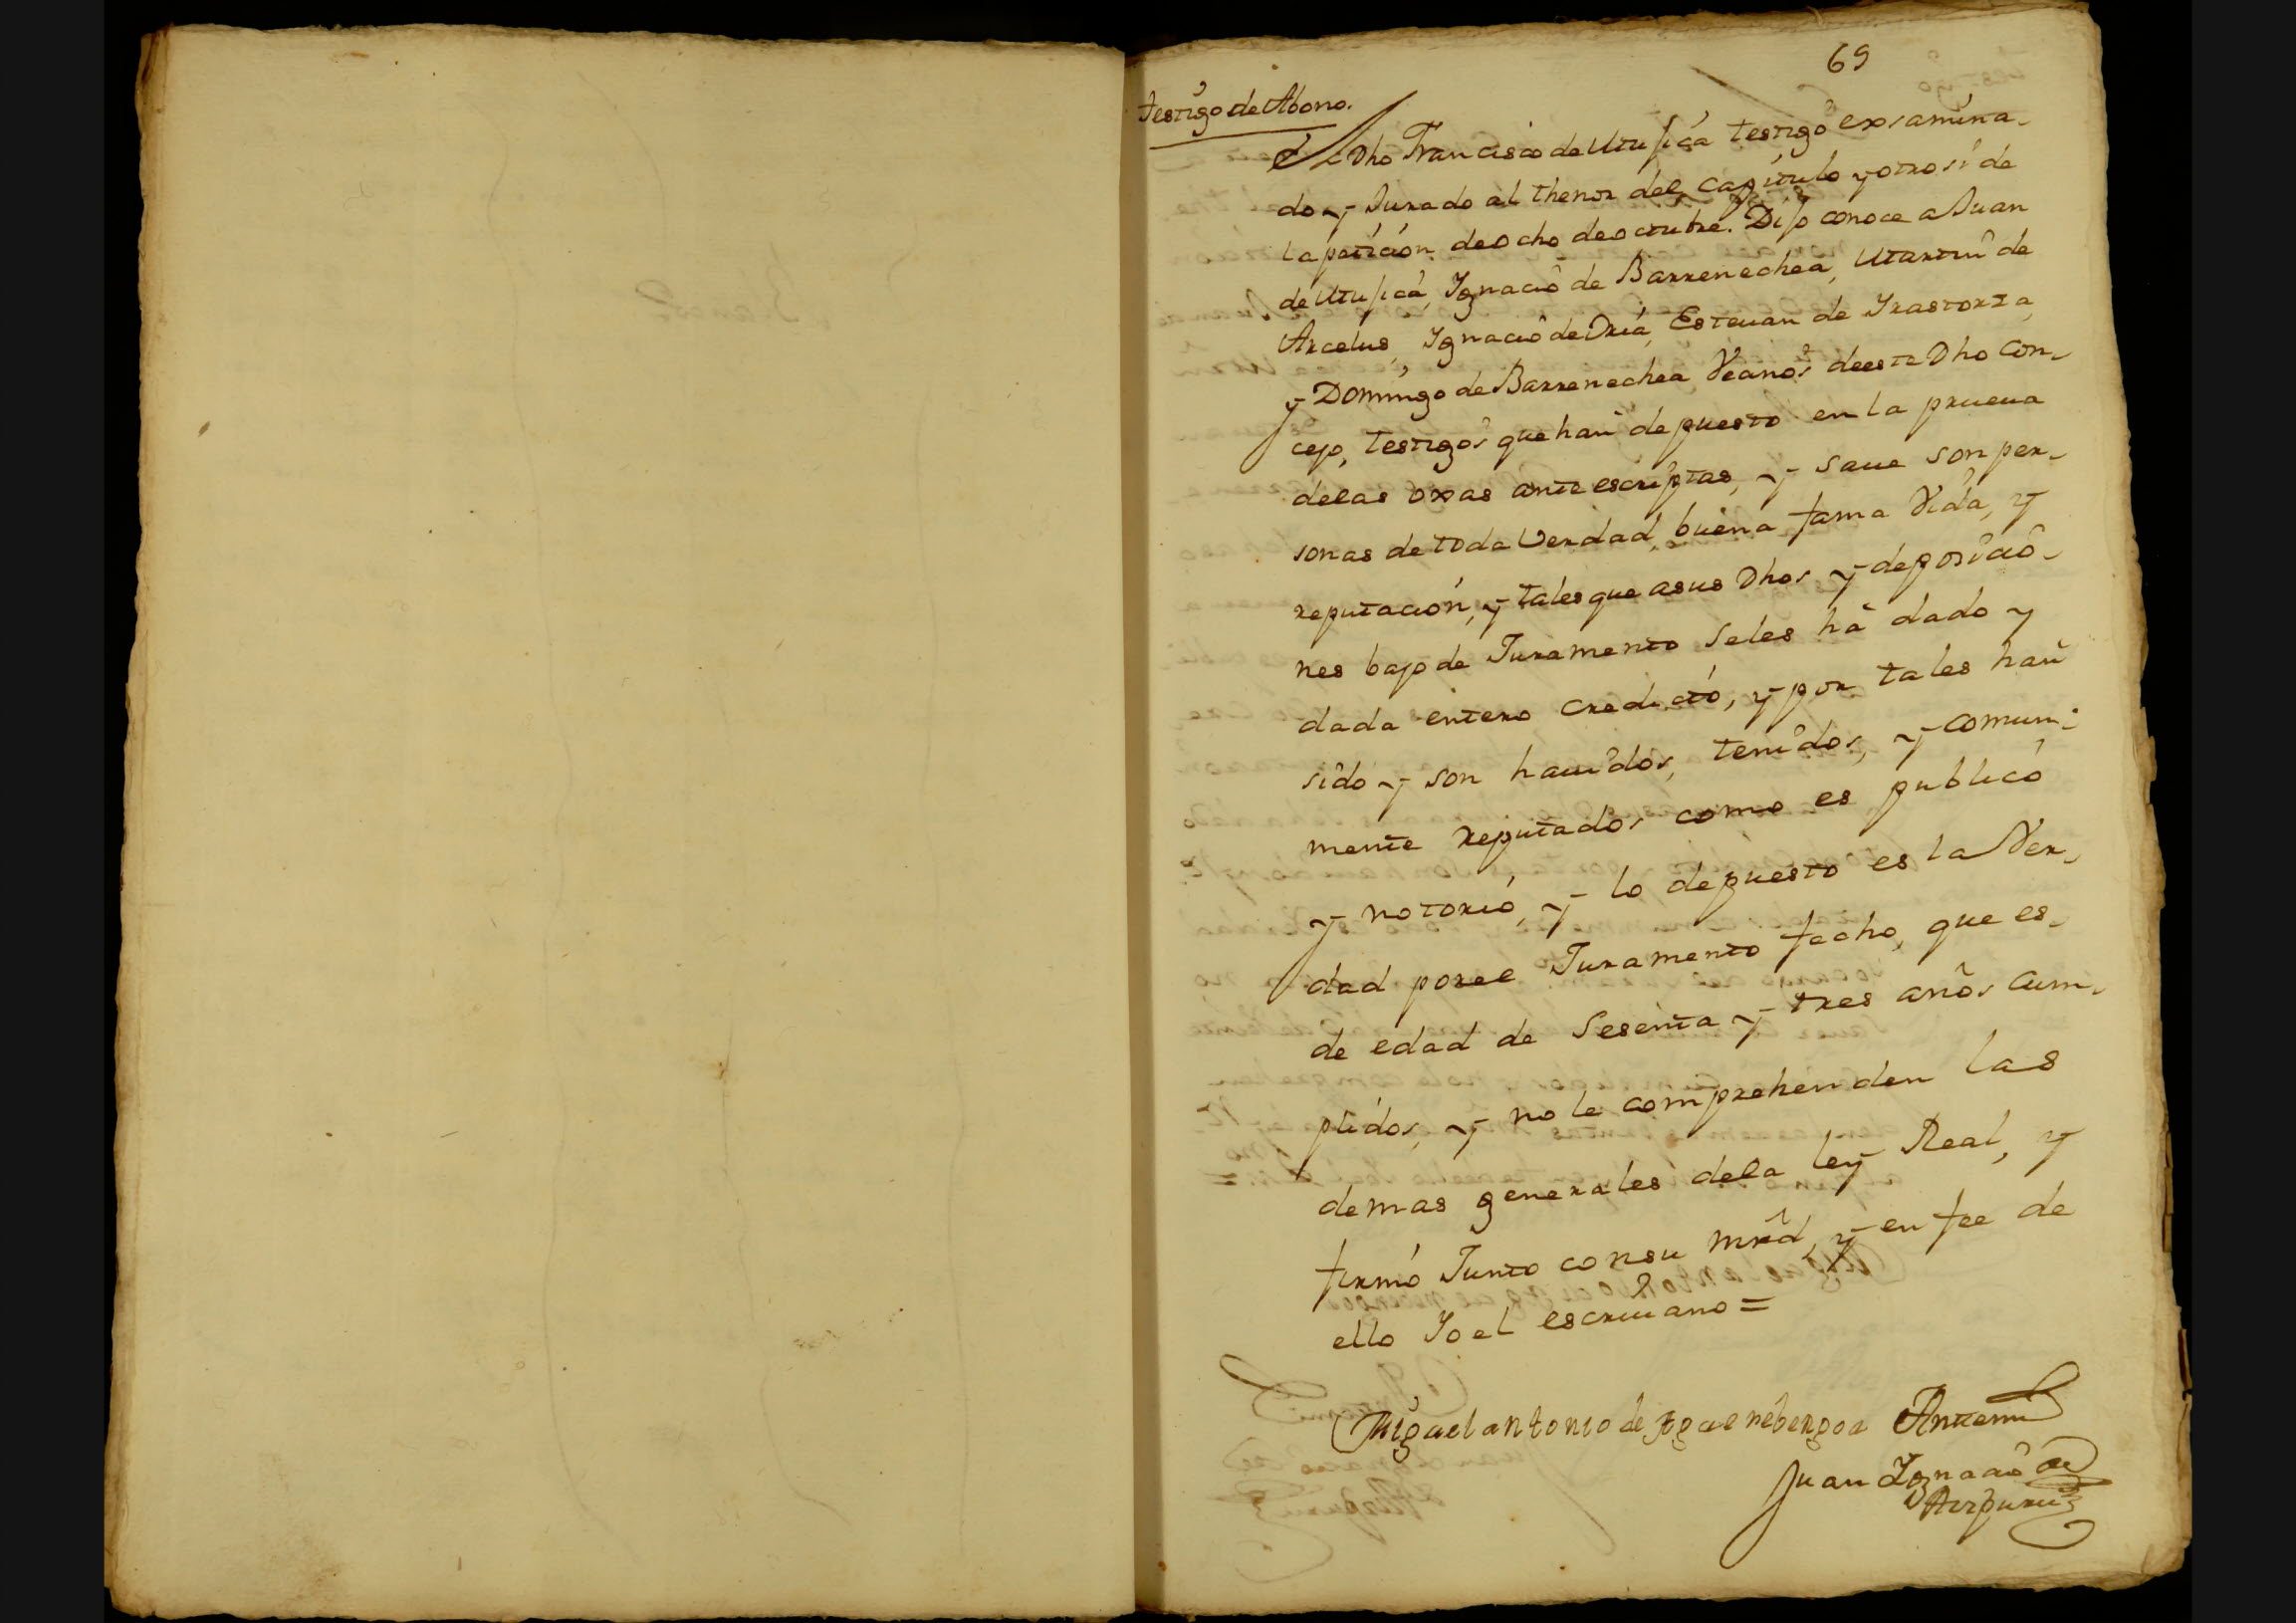 69
Testigo de Abono.
El Dho Francisco de Mujica testigo exsamina-
do y Jurado al thenor del capitulo y otro si de
la peticion de ocho de octubre. Dijo conoce a Juan
de Mujica, Ignacio de Barrenechea, Martin de
Arcelus, Ignacio de Oria, Esteuan de Irastorza,
y Domingo de Barrenechea Veanos de este Dho con-
cejo, testigos que han depuesto en la prueua
de las oxas ante escriptas, y saue son per-
sonas de toda Verdad, buena fama Vida, y
reputacion, y tales que a sus Dhos y deposicio-
nes bajo de Juramento se les ha dado y
dada entero credicto, y por tales han
sido y son hauidos, tenidos, y comun-
mente reputados como es publico
y notorio, y lo depuesto es la Ver-
dad por el Juramento fecho, que es
de edad de Sesenta y tres años cum-
plidos, y no le comprehenden las
demas generales de la ley Real, y
firmó Junto con su mrd, y en fee de
ello Yo el escriuano =
Miguel antonio de Antemi
Juan Ignacio de